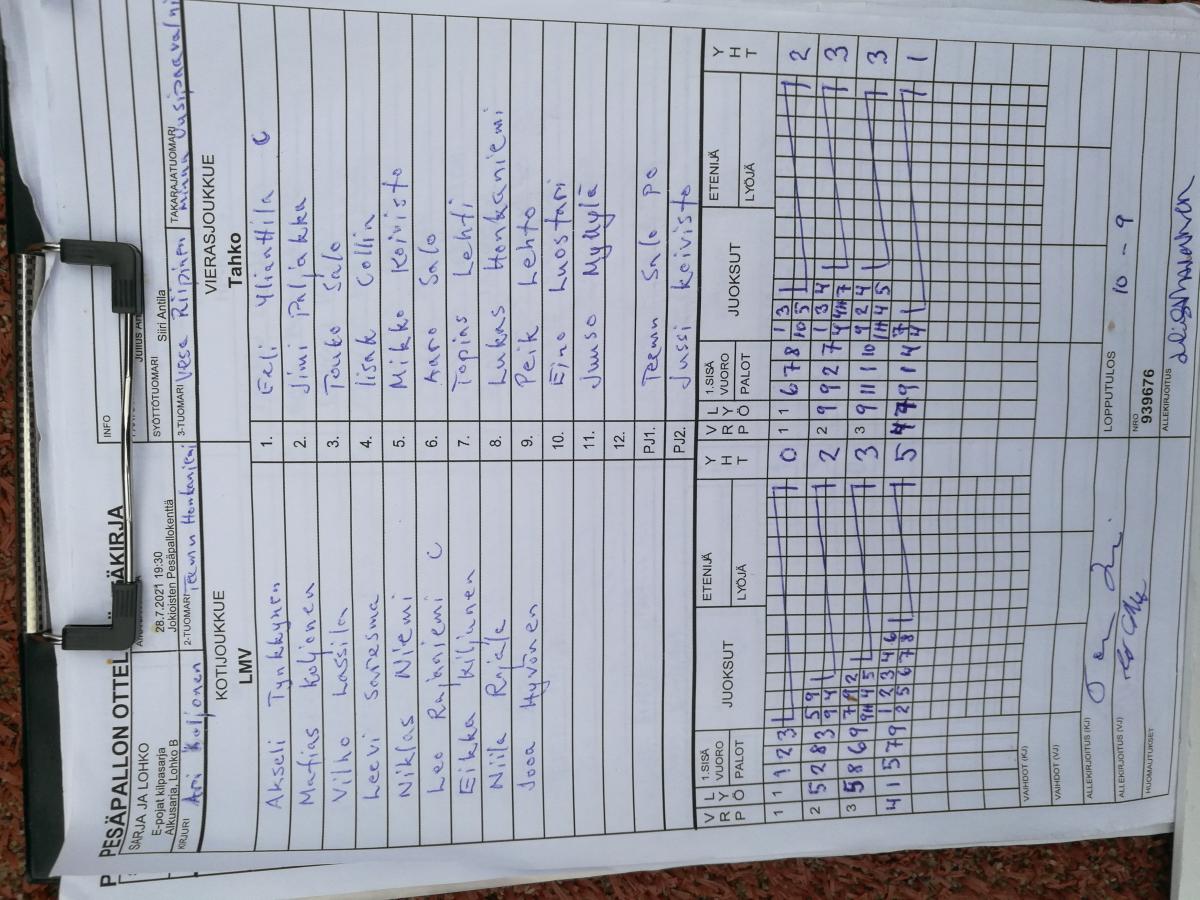 PESÄPALLON OTTEL TÄKIRJA
INFO
SARJA JA LOHKO
E-pojat kilpasarja
Alkusarja, Lohko B
28.7.2021 19:30
Jokioisten Pesäpallokenttä
SYÖTTÖTUOMARI
Siiri Antila
TAKARAJATUOMARI
Minna Uusipaavalni
KIRJURI Ari Koljonen
2-TUOMARI Teemu Honkaniemi
3-TUOMARI Vesa Riipinen
KOTIJOUKKUE
LMV
VIERASJOUKKUE
Tahko
Akseli Tynkkynen 1. Eeli Ylianttila C
Matias Koljonen 2. Jimi Paljakka
Vilho Lassila 3. Touko Salo
Leevi Saresma 4. Iisak Collin
Niklas Niemi 5. Mikko Koivisto
Leo Rajaniemi C 6. Aaro Salo
Eikka Kiljunen 7. Topias Lehti
Niila Riiala 8. Lukas Honkaniemi
Jooa Hyvönen 9. Peik Lehto
10. Eino Luostari
11. Juuso Myllylä
12.
PJ1. Teemu Salo PO
PJ2. Jussi Koivisto
V R P L Y Ö 1.SISÄ VUORO PALOT JUOKSUT ETENIJÄ LYÖJÄ Y H T V R P L Y Ö 1.SISÄ VUORO PALOT JUOKSUT ETENIJÄ LYÖJÄ Y H T
1 1 1 2 3 0 1 1 6 7 8 1 3 10 5 2
2 5 2 8 3 5 9 9 4 2 2 9 9 2 7 1 3 4 4 11 7 3
3 5 8 6 9 7 9 2 9 11 4 5 3 3 9 11 1 10 9 2 4 1 11 4 5 3
4 1 5 7 9 1 2 3 4 6 2 5 6 7 8 5 4 7 9 1 4 7 4 1
VAIHDOT (KJ)
VAIHDOT (VJ)
ALLEKIRJOITUS (KJ)
LOPPUTULOS 10 - 9
ALLEKIRJOITUS (VJ)
NRO
939676
HUOMAUTUKSET
ALLEKIRJOITUS